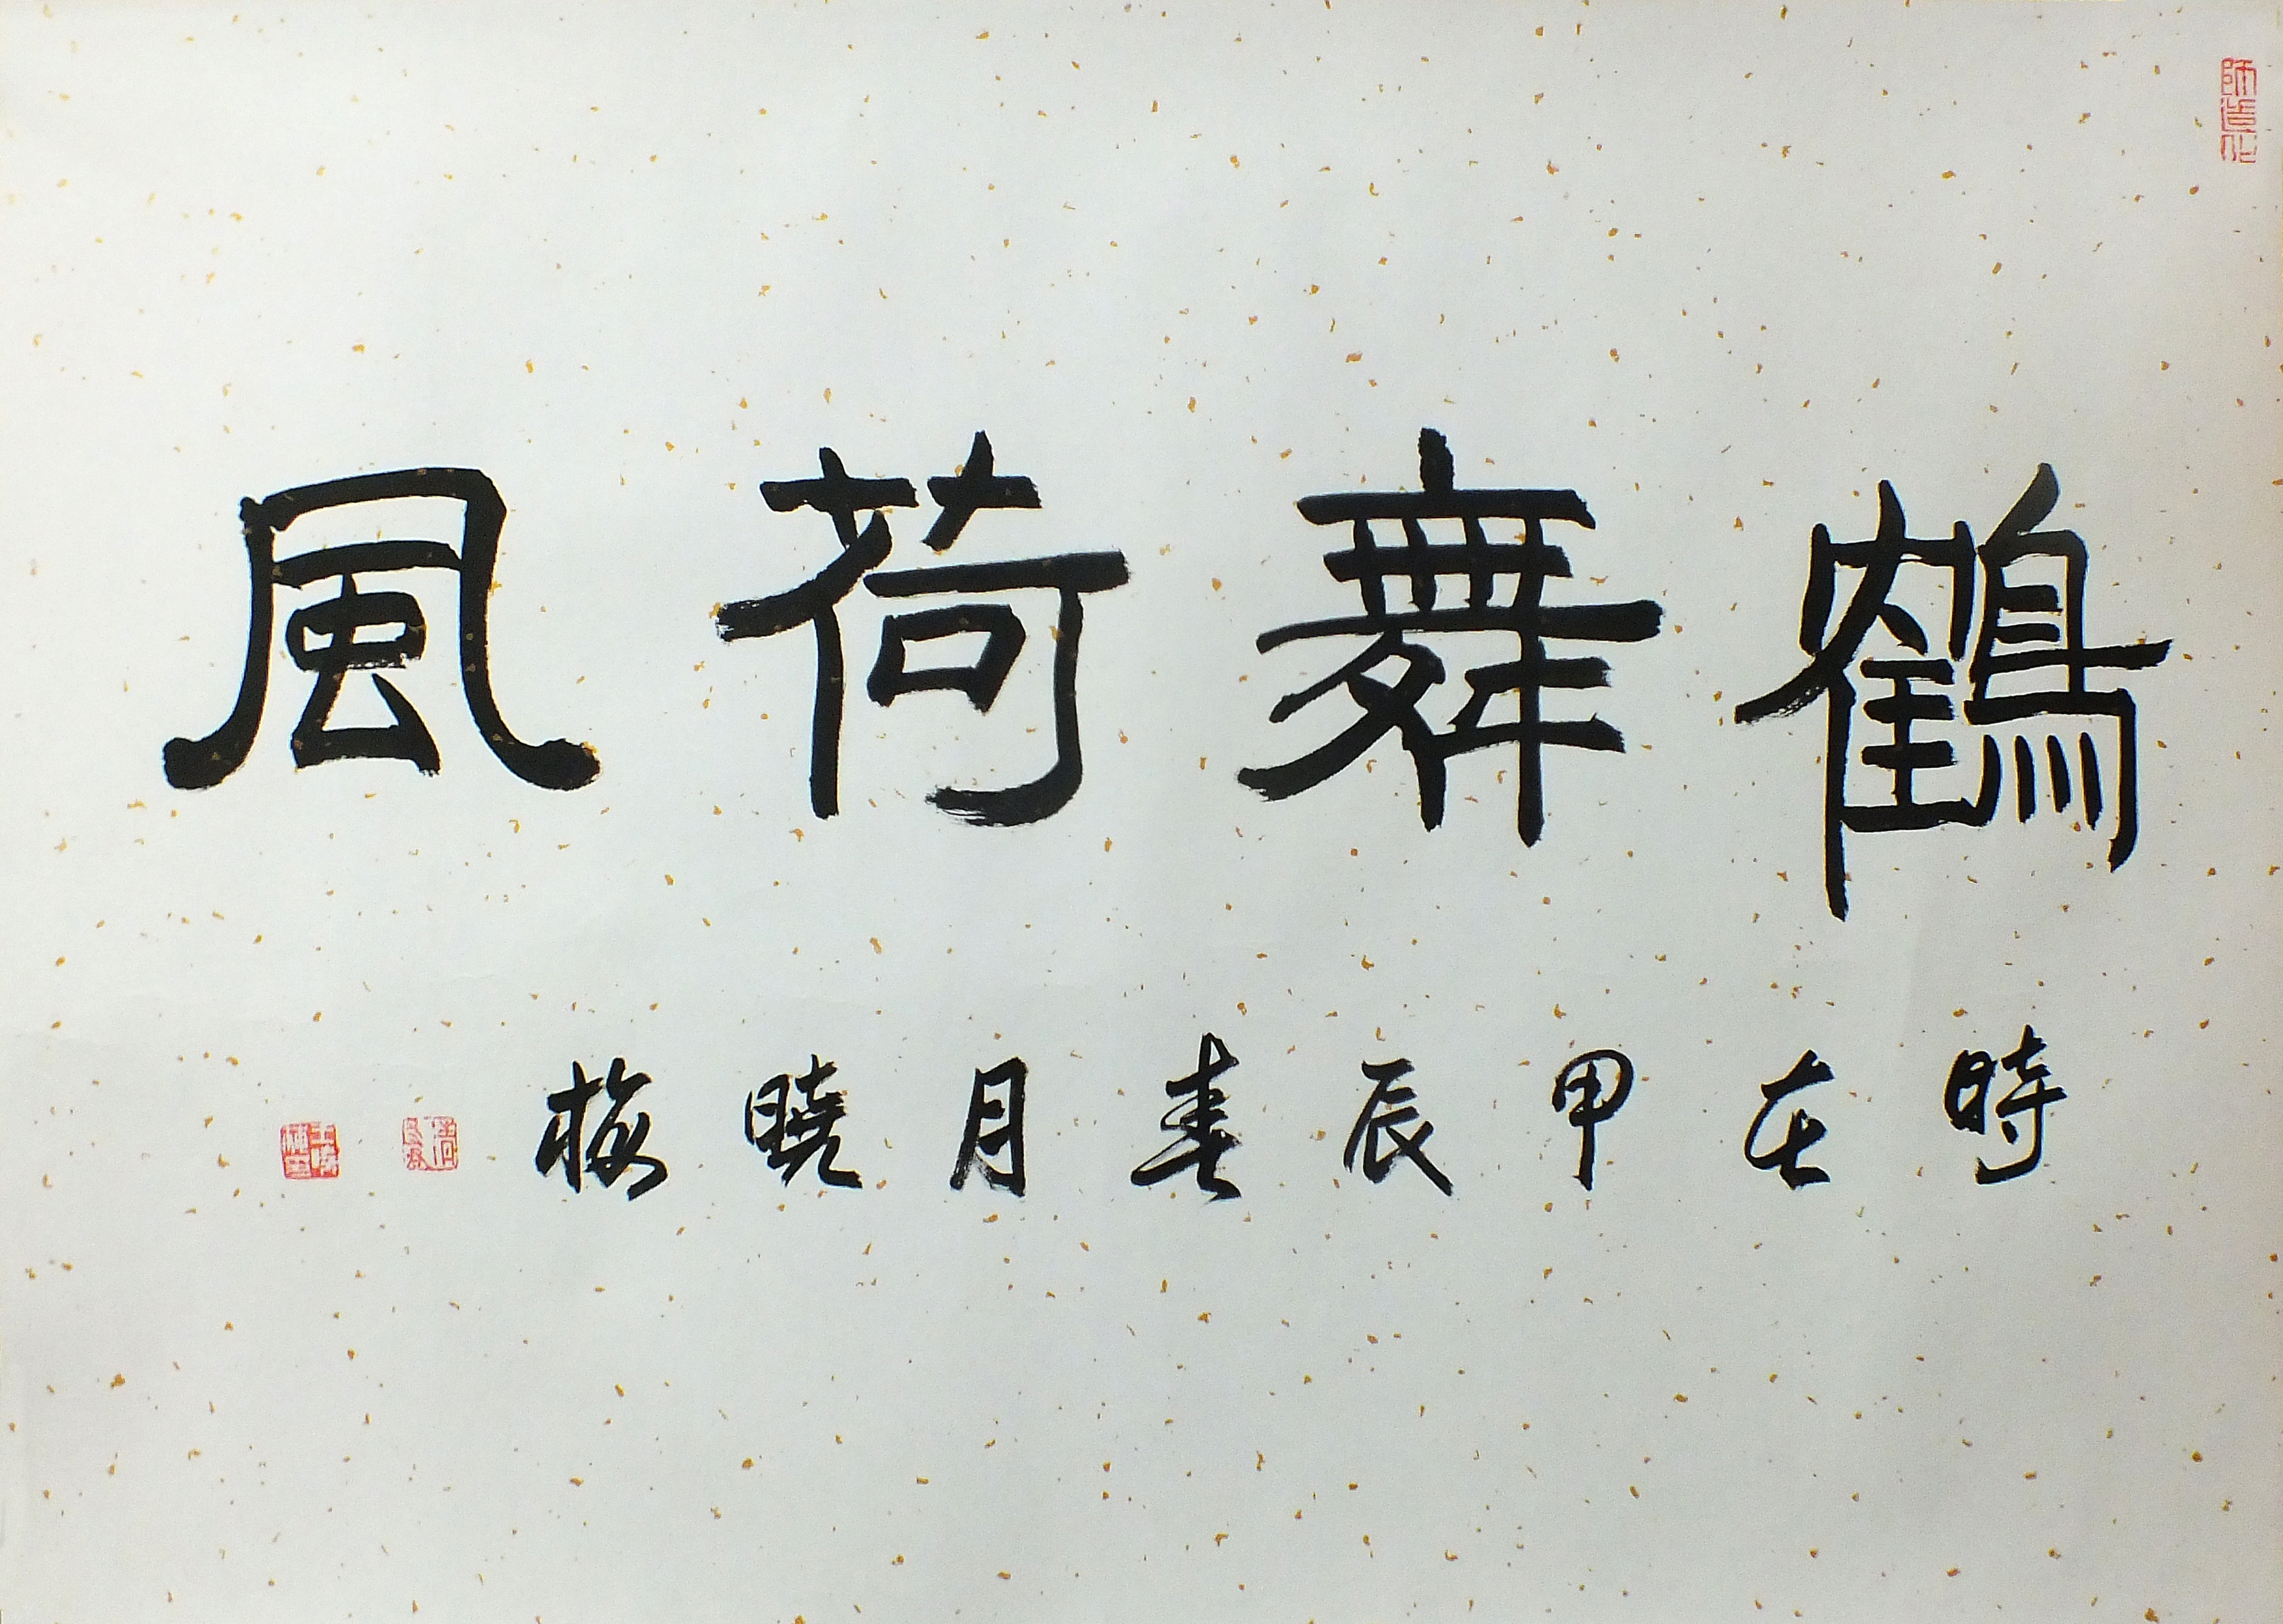 鶴舞荷風
時在甲辰春月曉梅
師造化